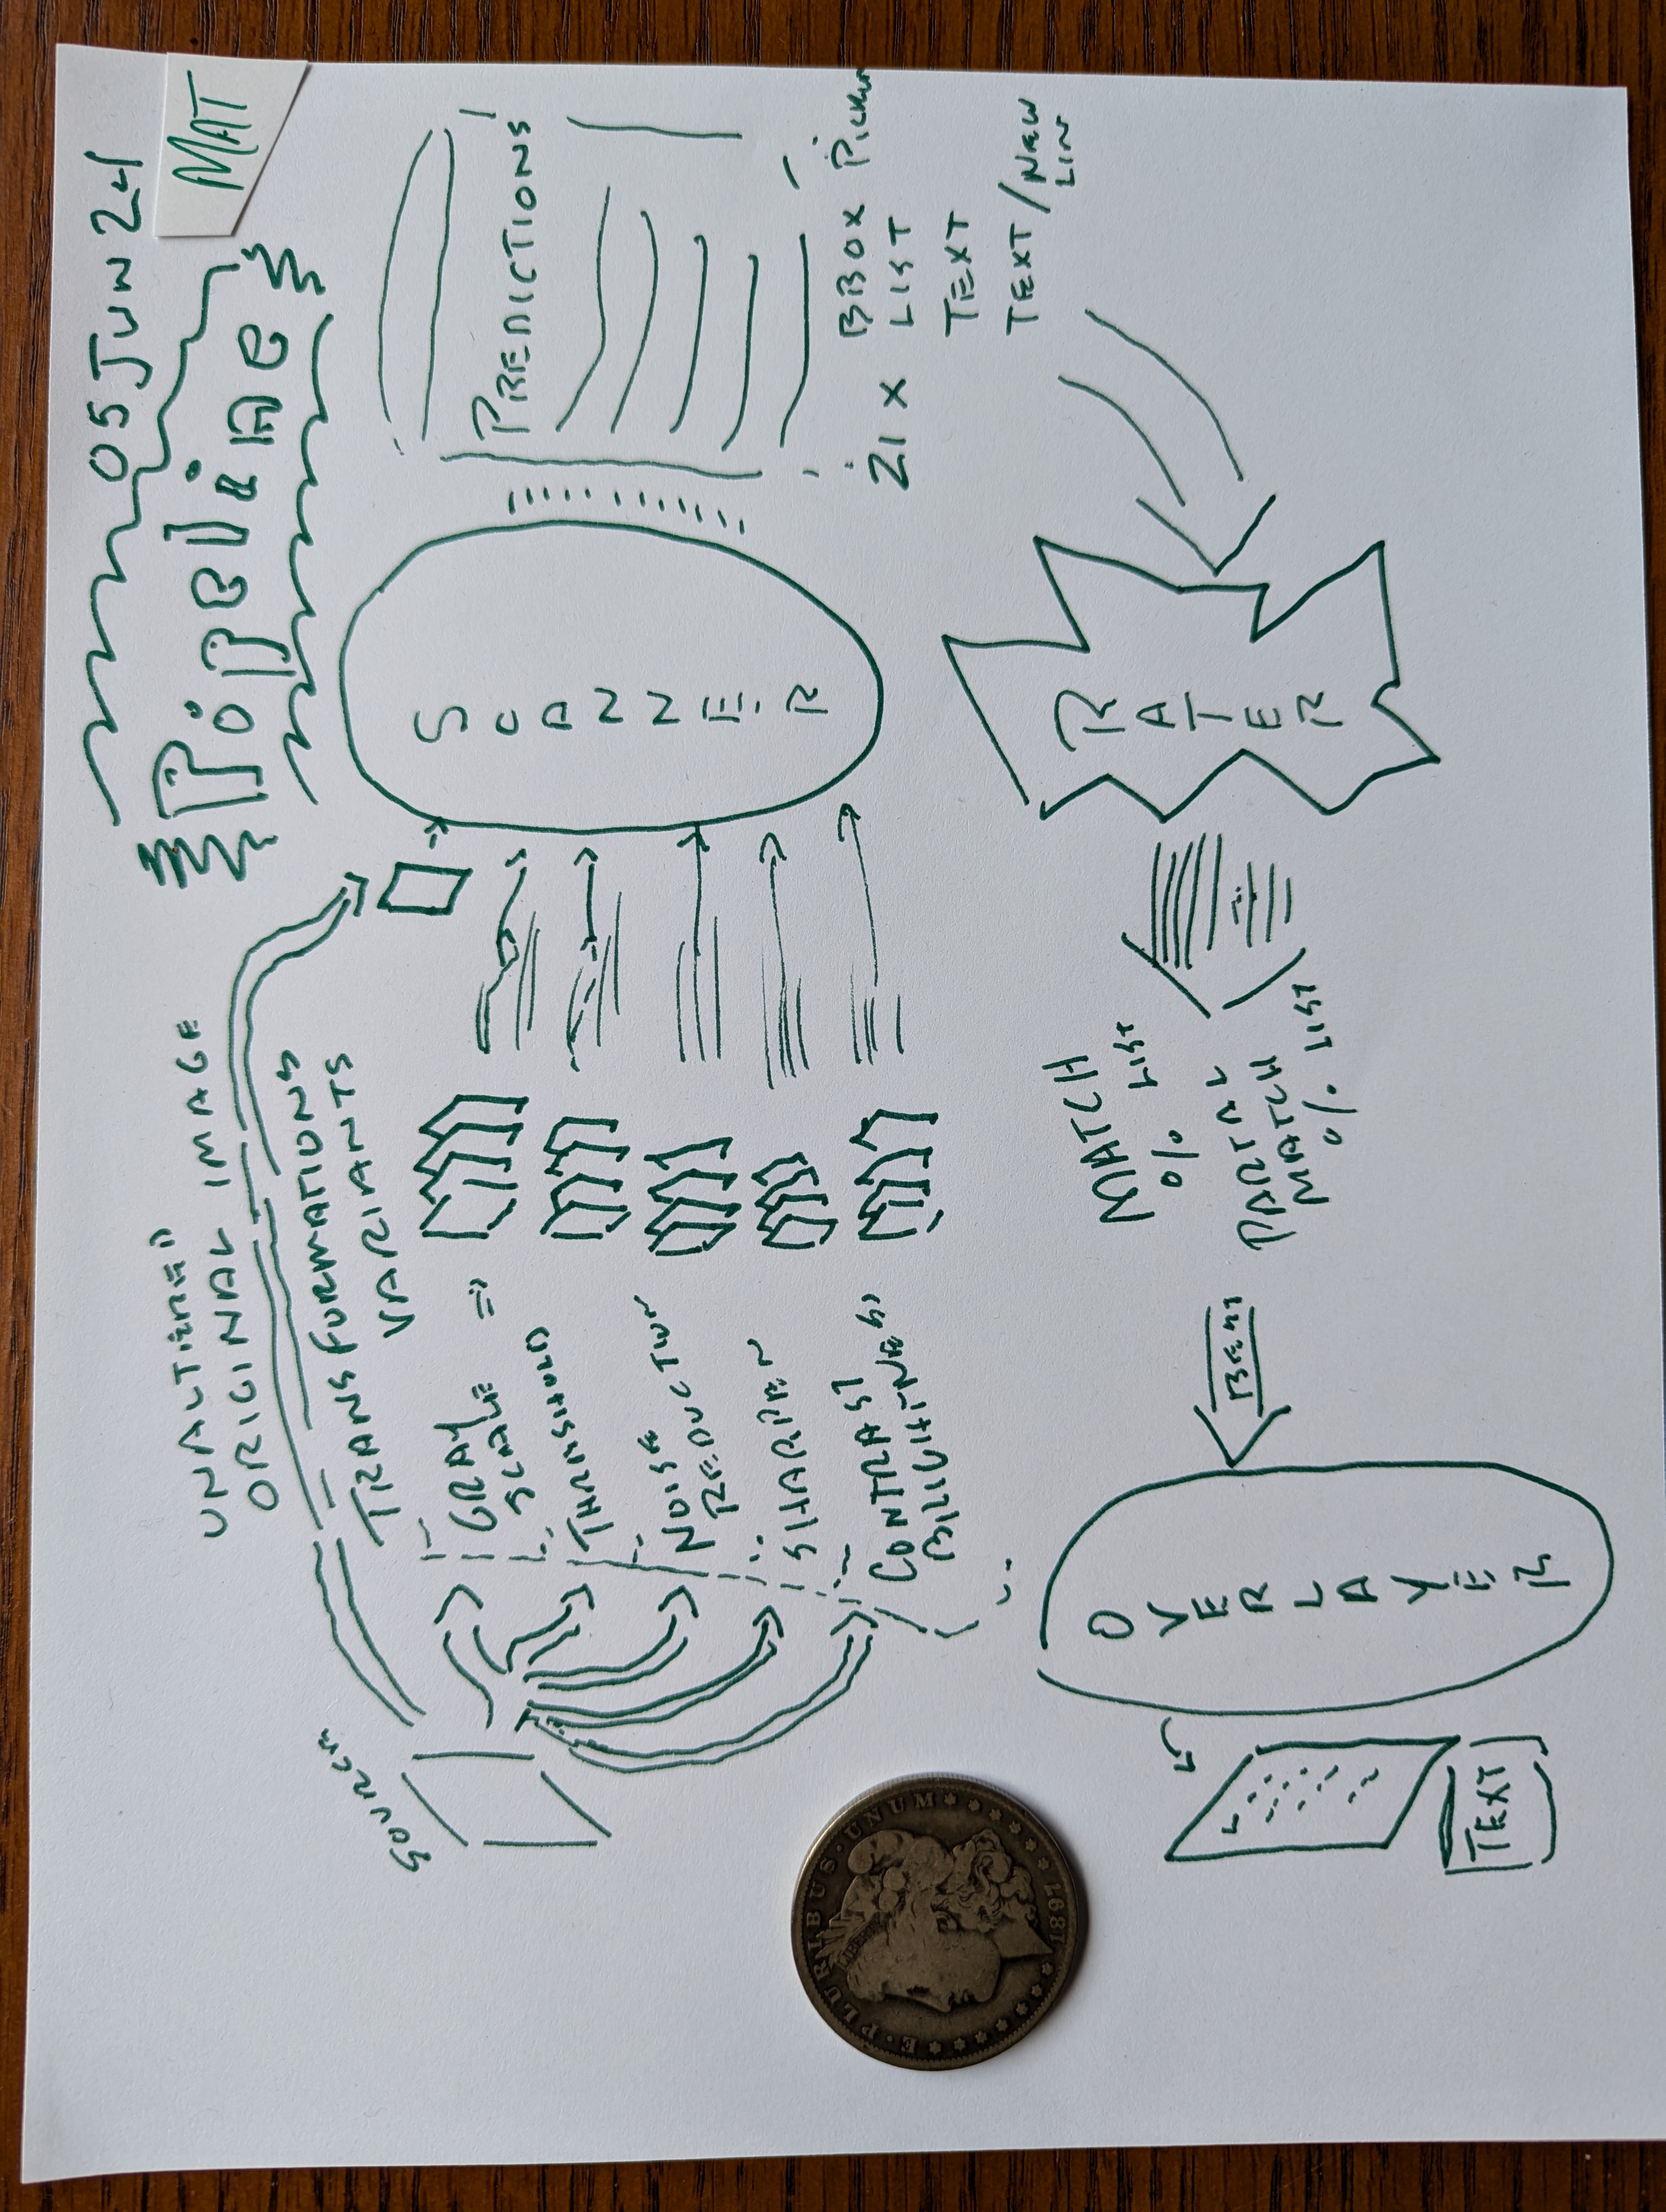 05 JUN 24
MAT
Pipeline
UNALTERED
ORIGINAL IMAGE
SOURCE
TRANSFORMATIONS
VARIANTS
GRAY
SCALE
THRESHOLD
NOISE
REDUCTION
SHARPEN
CONTRAST
BRIGHTNESS
SCANNER
PREDICTIONS
21 X
BBOX
LIST
TEXT
TEXT / NEW
LIN
RATER
MATCH
% LIST
PARTAL
MATCH
% LIST
BEST
OVERLAYER
TEXT
E·PLURIBUS·UNUM
1897